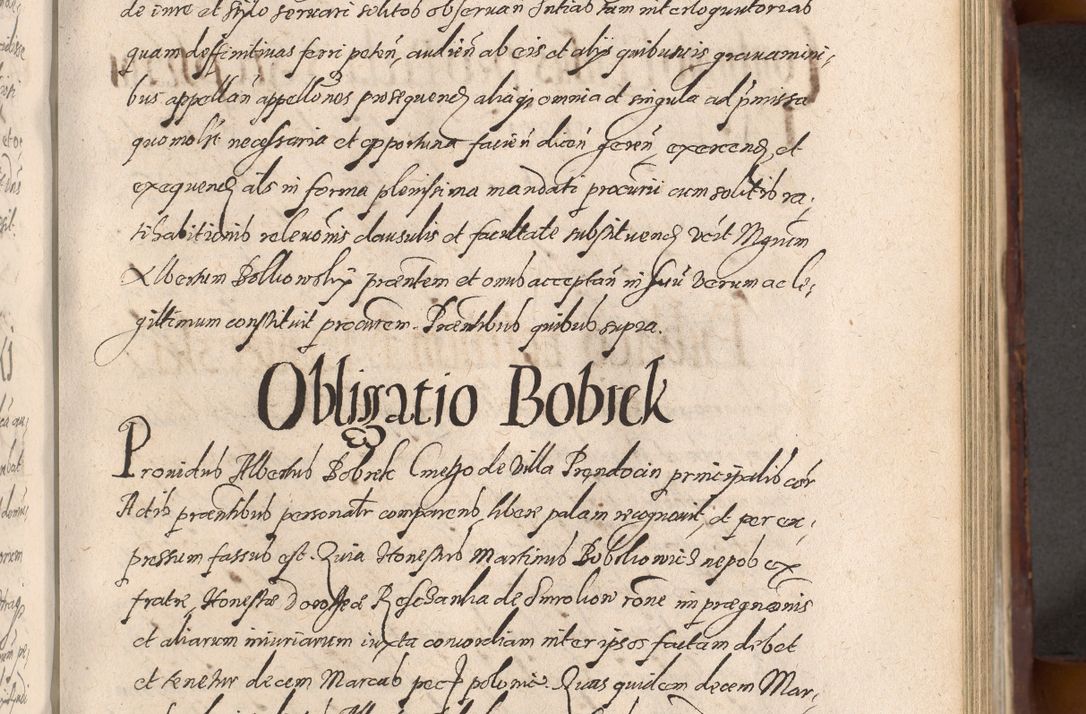 de iure et stylo servari solitos observan̄ sn̄tias tam interloquutorias
quam deffinitivas ferri peten̄, audien̄ ab eis et alijs quibusvis gravamini,
bus appellan̄ appellōnes prosequend aliaq omnia et singula ad p̄missa
quomolt necessaria et opportuna facien̄ dicen̄ geren̄ exercend et
exequend als in forma plenissima mandati procurrii cum solitis ra,
tihabitionis relevōnis clausulis et facultate substituend vc̄it Mgnm
Albertum Bolkowsky praentem et onus acceptan̄ in suū verum ac le,
gittimum constituit procurem. Praentibus quibus supra.
Obligatio Bobrek
Providus Albertus Bobrek Cmetho de Villa Prendocin principalis cor
Actis praentibus personatr comparens libere palam recognovit, et per ex,
pressum fassus est. Quia Honestus Martinus Bobrkowicz nepos ex
fratre, Honestae Dorotheae de Smrokow rōne impraegnōnis
et aliarum iniuriarum iuxta concordiam inter ipsos factam debet
et tenetur decem Marcas pec polonic. Quas quidem decem Mar,